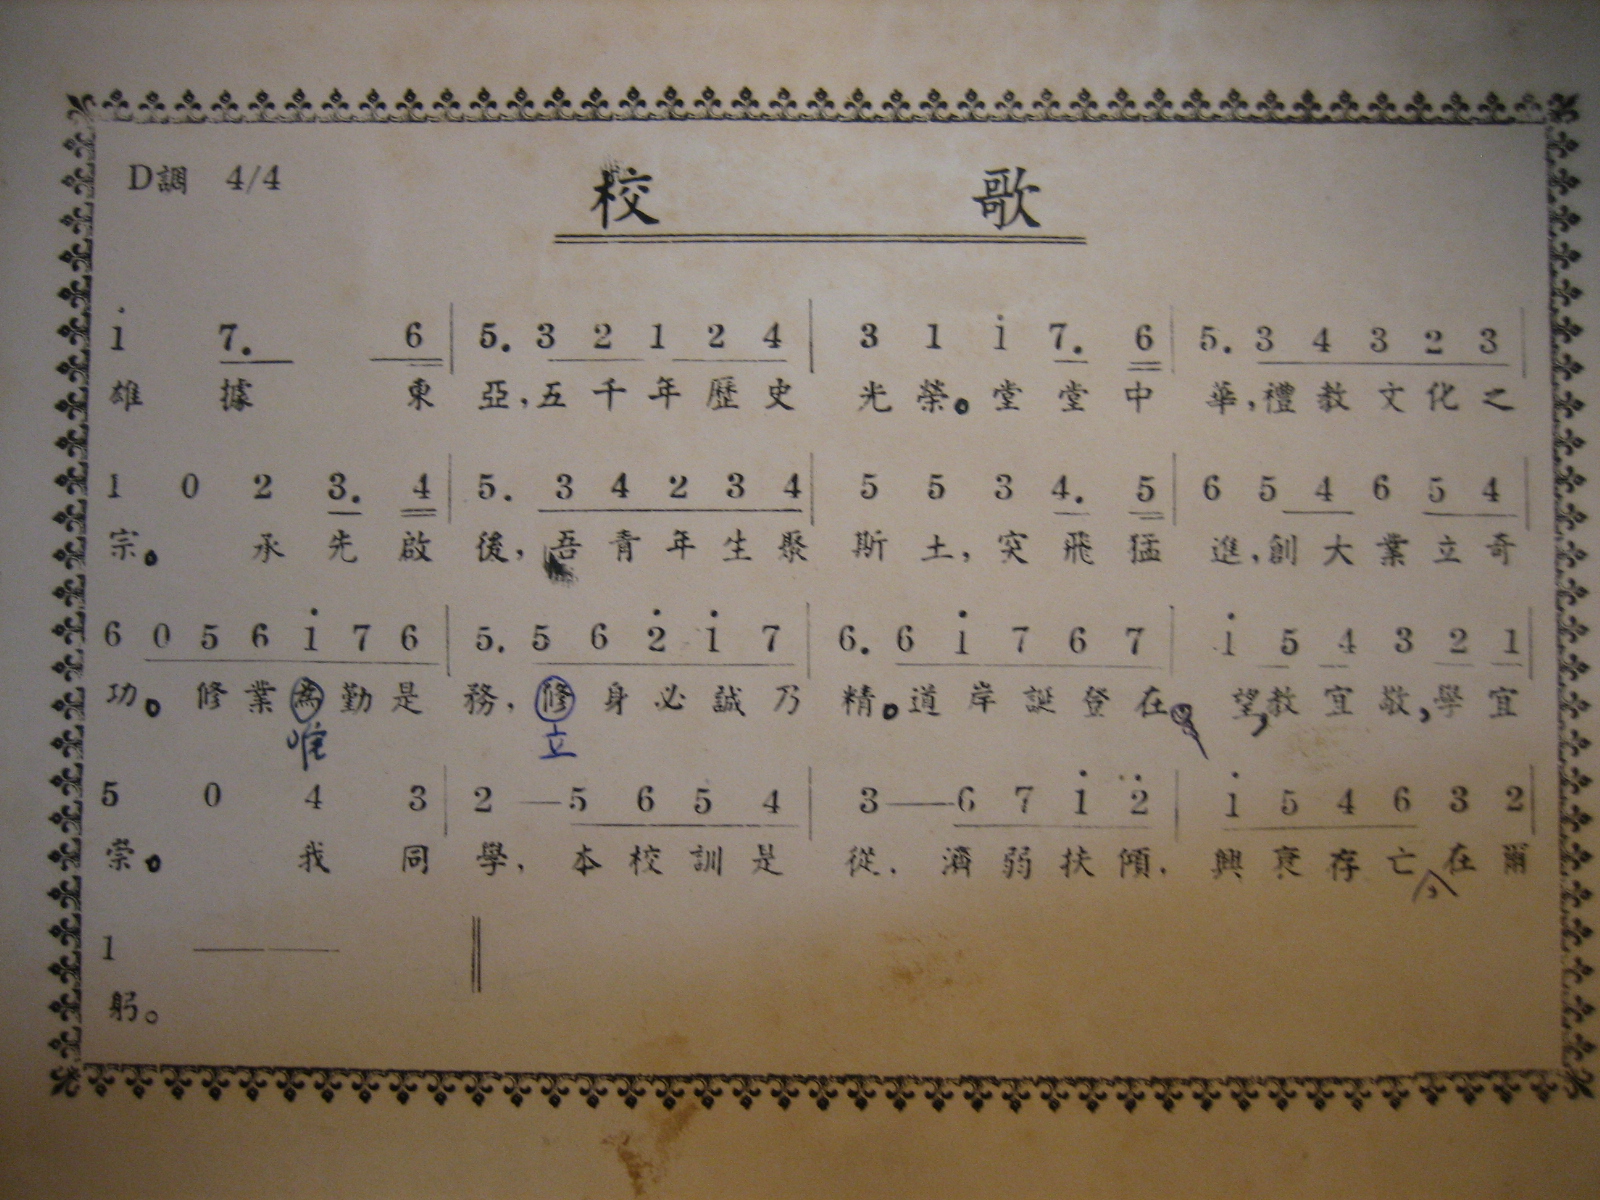 D調 4/4
校歌
i 7. 6 | 5. 3 2 1 2 4 | 3 1 i 7. 6 | 5. 3 4 3 2 3
雄據東亞,五千年歷史光榮。堂堂中華,禮教文化之
1 0 2 3. 4 | 5. 3 4 2 3 4 | 5 5 3 4. 5 | 6 5 4 6 5 4
宗。承先啟後,吾青年生聚斯土,突飛猛進,創大業立奇
6 0 5 6 i 7 6 | 5. 5 6 2̇ i 7 | 6. 6 i 7 6 7 | i 5 4 3 2 1
功。修業為勤是務,修身必誠乃精。道岸誕登在望,教宜敬,學宜
唯 立
5 0 4 3 | 2 — 5 6 5 4 | 3 — 6 7 i 2̇ | i 5 4 6 3 2
崇。我同學,本校訓是從.濟弱扶傾.興衰存亡,在爾
1 — —
躬。